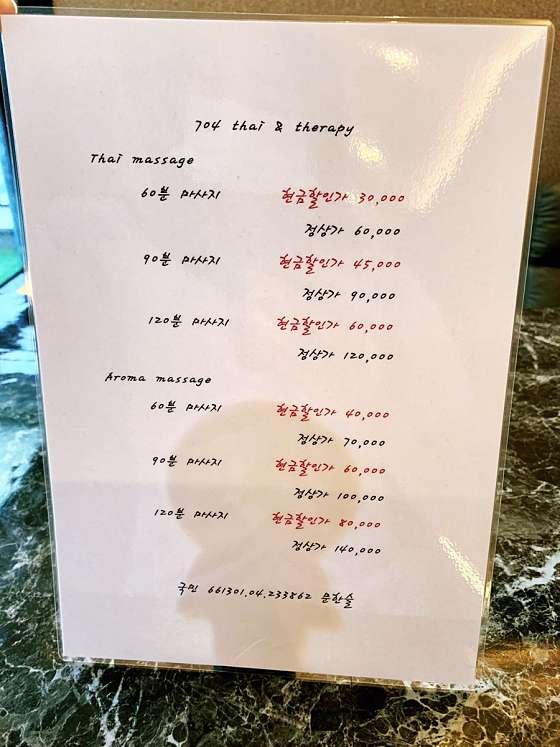 704 thai & therapy
Thai massage
60분 마사지 현금할인가 30,000
정상가 60,000
90분 마사지 현금할인가 45,000
정상가 90,000
120분 마사지 현금할인가 60,000
정상가 120,000
Aroma massage
60분 마사지 현금할인가 40,000
정상가 70,000
90분 마사지 현금할인가 60,000
정상가 100,000
120분 마사지 현금할인가 80,000
정상가 140,000
국민 661301.04.233862 문한솔